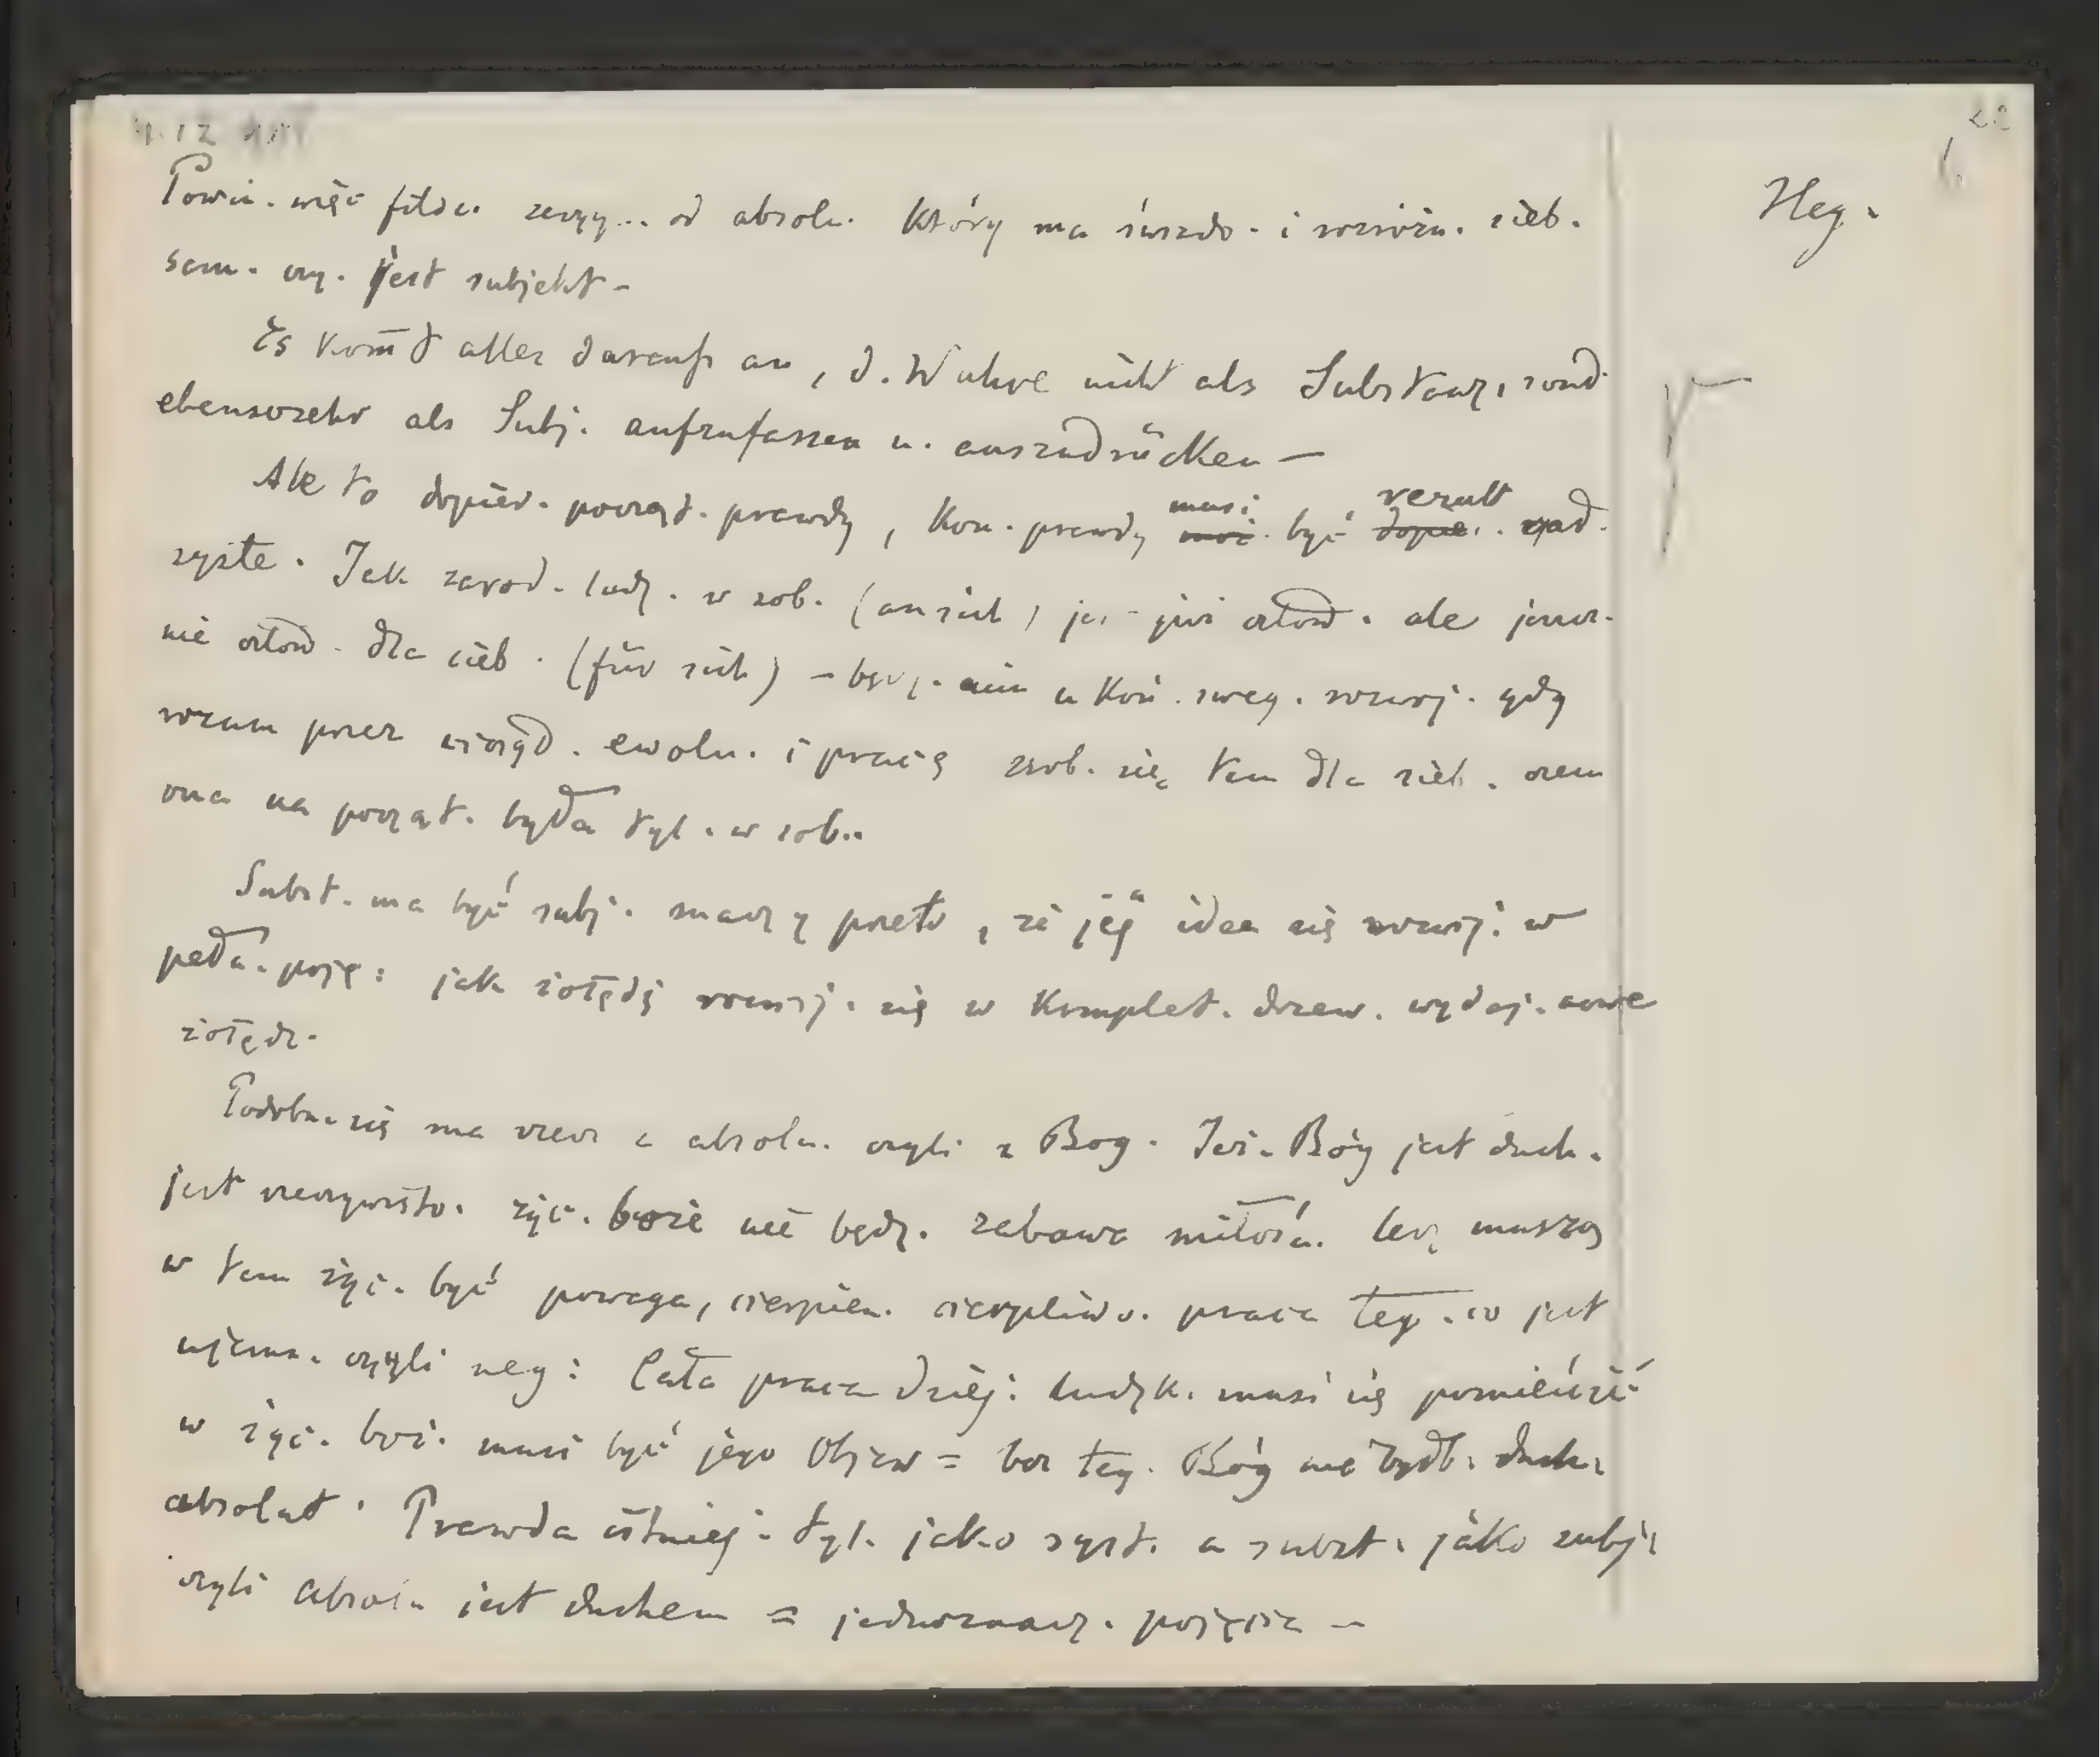 Powin. więc filozo. zaczy... od absolu. który ma świado. i rozróżn. sieb.
Heg.
sam. czy. jest subjekt –
Es kom̄t alles darauf an, d. Wahre nicht als Substanz, sond.
ebensosehr als Subj. aufzufassen u. auszudrücken –
Ale to dopier. począt. prawdy, kon. prawdy musi być rezult
syste. Jak zarod. ludz. w sob. (an sich) je. już człow. ale jeszcz.
nie człow. dla sieb. (für sich) – będz. nim u koń. sweg. rozwoj. gdy
rozum przez ewolu. i pracę zrob. się tem dla sieb. czem
ona na począt. była tyl. w sob..
Subst. ma być subj. znaczy przeto, że jej idea się rozwij. w
pełn. poję. jak żołędź rozwij. się w komplet. drzew. wydaj. nowe
żołędz.
Podobn. się ma rzecz z absolu. czyli z Bog. Jeż. Bóg jest duch.
jest rzeczywisto. życ. boże nie będz. zabawa miłośc. lecz muszą
w tem życ. być powaga, cierpien. cierpliwo. praca teg. co jest
ujemn. czyli neg: Cała praca dziej: ludzk. musi się pomieścić
w życ. boż. musi być jego objaw = bez teg. Bóg nie był b. duch.
absolut. Prawda istniej. tyl. jako syst. a subst. jako subj.
czyli absolu jest duchem = jednoznacz. pojęcia –